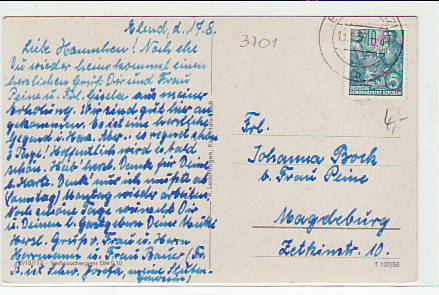 Elend, d. 17.8.
Liebe Hannchen! Noch ehe
Du wieder heimkommst einen
herzlichen Gruß Dir und Frau
Peine u. Frl. Gisela aus meiner
Erholung. Wir sind gut hier an
gekommen. Es ist eine herrliche
Gegend u. Haus. Aber es regnet schon
3 Tage! Hoffentlich wird es bald
schön. Hab' herzl. Dank für Deine
l. Karte. Denk' nur ich muß
Samstag Montag wieder arbeiten.
Noch schöne Tage wünscht Dir
u. Deinen l. Gastgebern Deine
Herzl. Gruß v. Frau u. Herrn
Herrmann u. Frau Bauer (Fr.
B. ist Schw. Josefa, meine
3701
DEUTSCHE
DEMOKRATISCHE REPUBLIK
4,-
Frl.
Johanna Bock
b. Frau Peine
Magdeburg
Zetkinstr. 10.
Verbraucherpreis DM 0,10
T 137/56